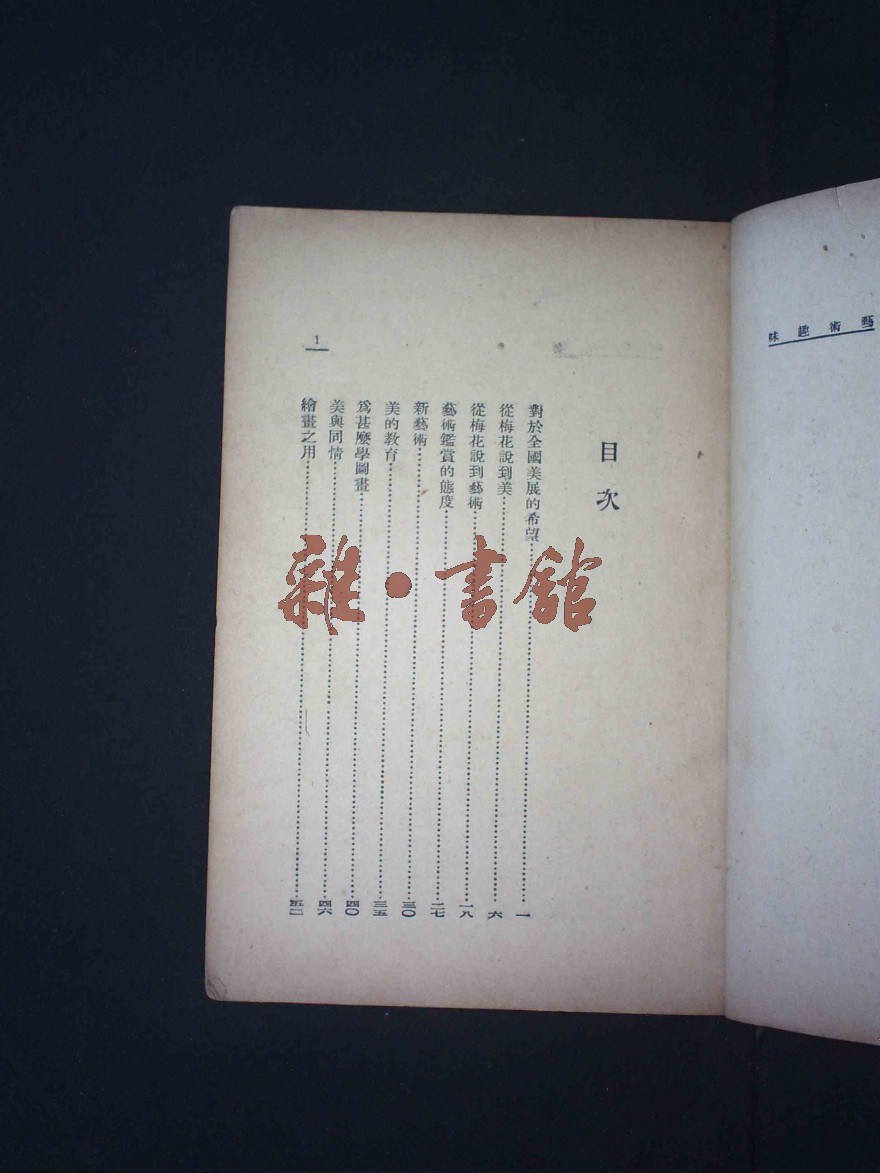 藝術趣味
1
目次
對於全國美展的希望……一
從梅花說到美……六
從梅花說到藝術……一八
藝術鑑賞的態度……二七
新藝術……三〇
美的教育……三五
爲甚麼學圖畫……四〇
美與同情……四六
繪畫之用……五二
雜·書館